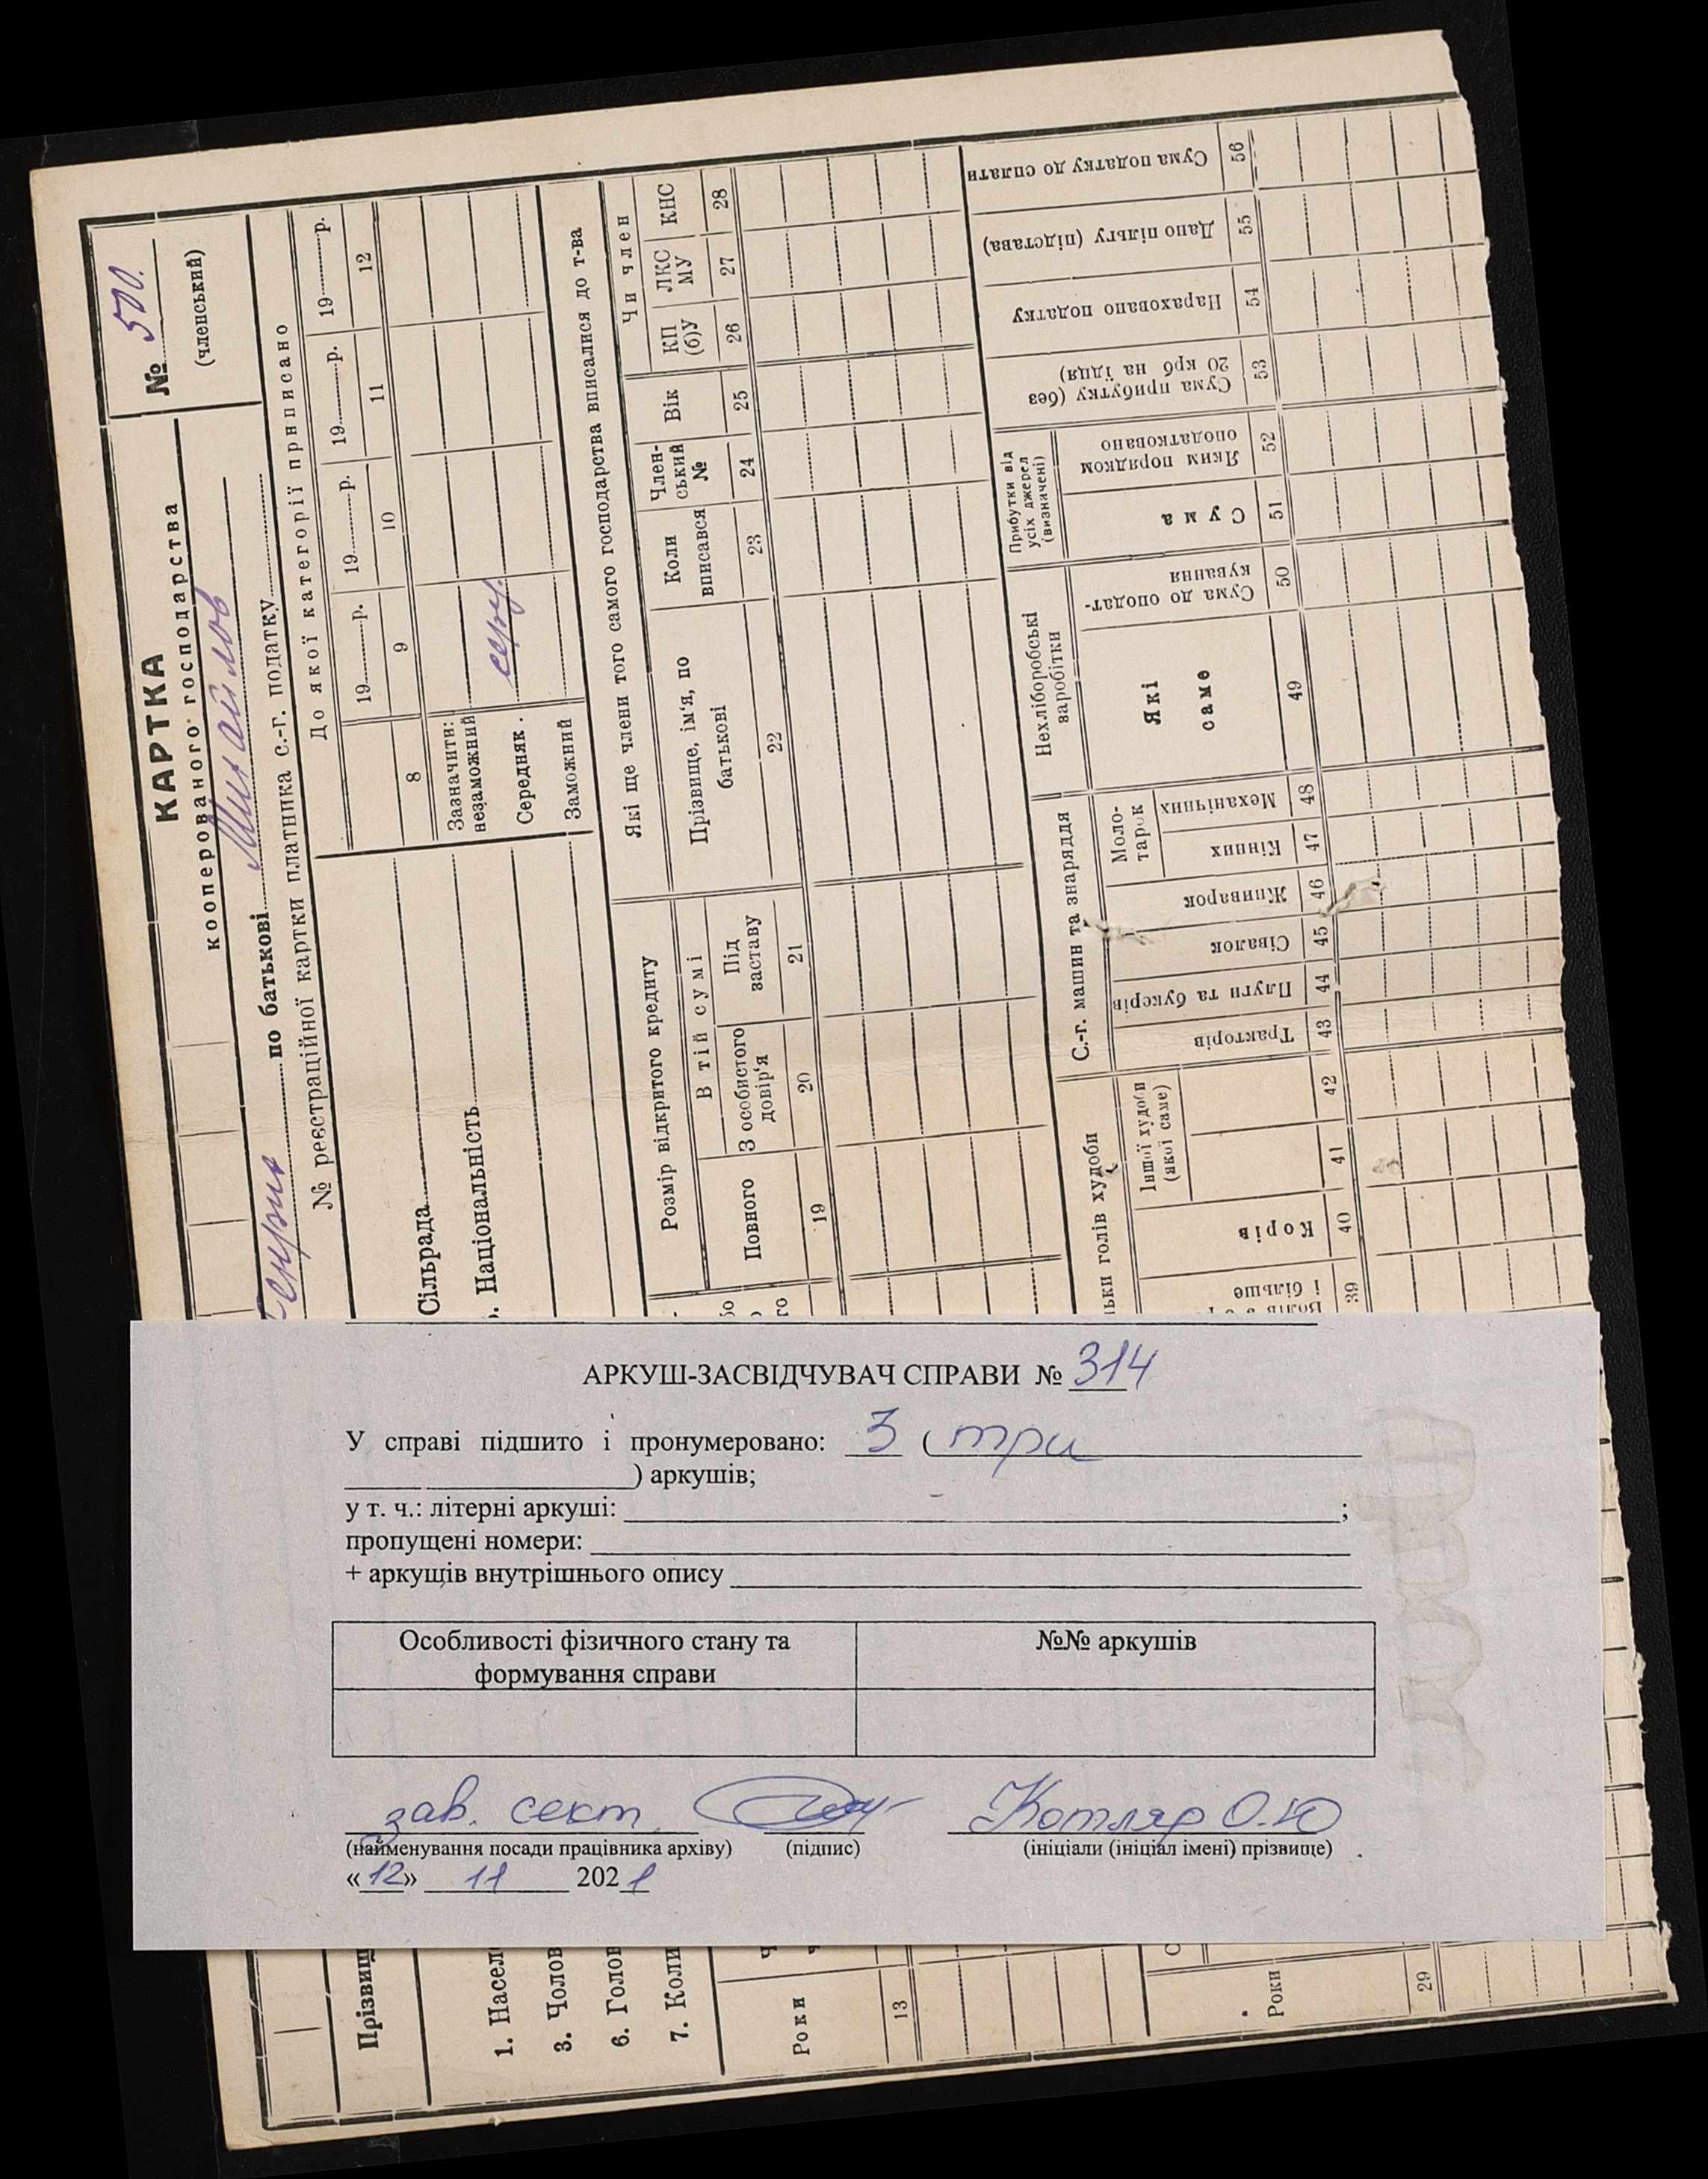 № 500.
(членський)
КАРТКА
кооперованого господарства
Генрих по батькові Михайлов
№ реєстраційної картки платника с.-г. податку
До якої категорії приписано
19 р. 19 р. 19 р. 19 р.
8 9 10 11 12
Зазначити:
незаможний
Середняк .
Заможний
Сільрада
Національність
Які ще члени того самого господарства вписалися до т-ва
Розмір відкритого кредиту
В тій сумі
Повного
З особистого довір'я
Під заставу
Прізвище, ім'я, по батькові
Коли вписався
Член-ський №
Вік
Чи член
КП (б)У
ЛКС МУ
КНС
19 20 21 22 23 24 25 26 27 28
льки голів худоби
і більше
Корів
Іншої худоби (якої саме)
С.-г. машин та знаряддя
Тракторів
Плуги та букерів
Сівалок
Жниварок
Моло-тарок
Кінних
Механічних
Нехліборобські заробітки
Які саме
Сума до оподат-кування
Прибутки від усіх джерел (визначені)
Сума
Яким порядком оподатковано
Сума прибутку (без 20 крб на їдця)
Нараховано податку
Дано пільгу (підстава)
Сума податку до сплати
39 40 41 42 43 44 45 46 47 48 49 50 51 52 53 54 55 56
АРКУШ-ЗАСВІДЧУВАЧ СПРАВИ № 314
У справі підшито і пронумеровано: 3 ( три
) аркушів;
у т. ч.: літерні аркуші: ;
пропущені номери:
+ аркущів внутрішнього опису
Особливості фізичного стану та формування справи
№№ аркушів
зав. сект. Котляр О.Ю
(найменування посади працівника архіву) (підпис) (ініціали (ініціал імені) прізвище)
«12» 11 2021
Прізвищ
1. Насел
3. Чолов
6. Голов
7. Коли
Роки
13
Роки
29